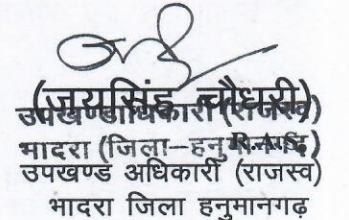 (जयसिंह चौधरी)
उपखण्डाधिकारी (राजस्व)
भादरा (जिला-हनुमानगढ़)
R.A.S.
उपखण्ड अधिकारी (राजस्व)
भादरा जिला हनुमानगढ़